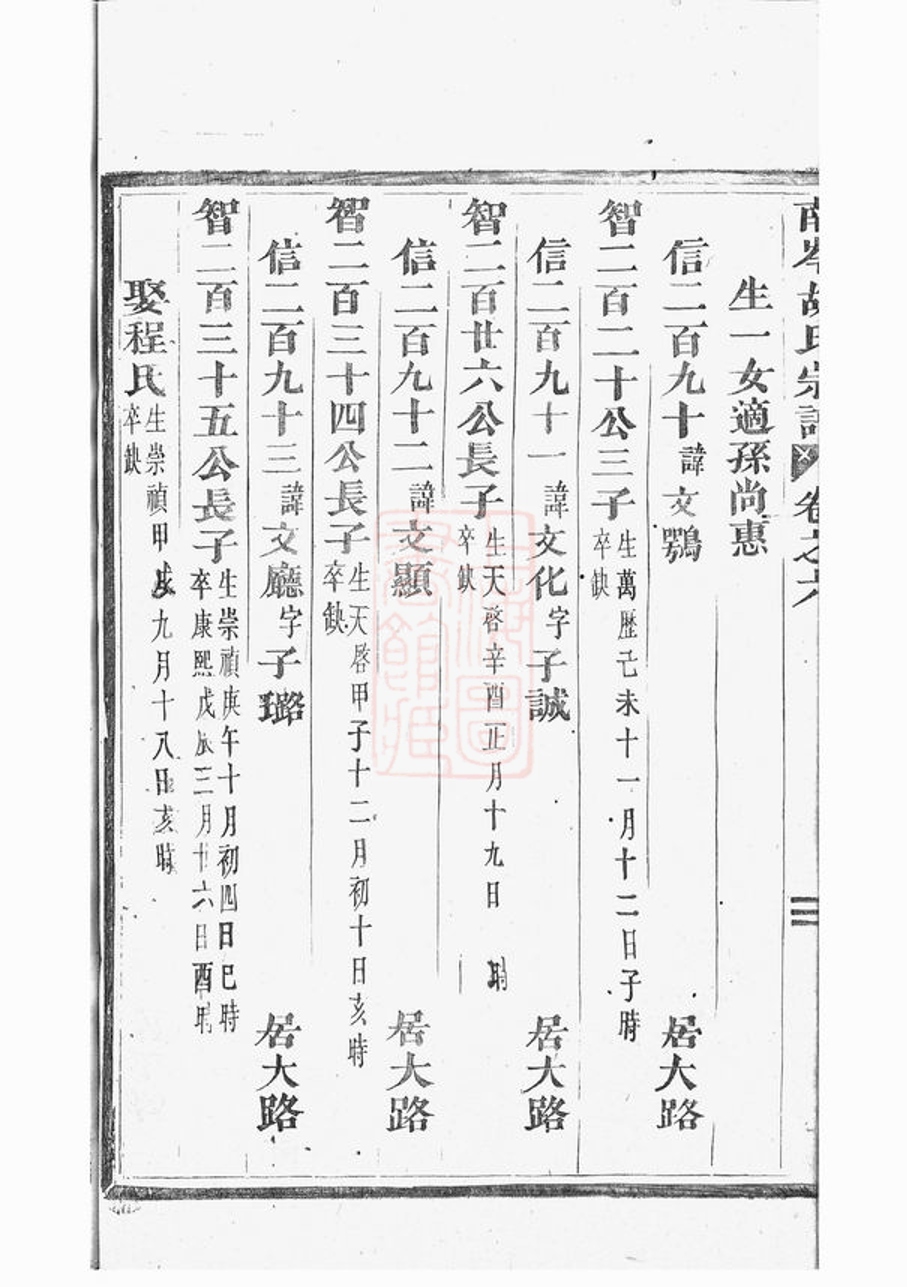 南岑胡氏宗譜 卷之六
生一女適孫尚惠
信二百九十諱文鶚 居大路
智二百二十公三子生萬歷己未十一月十二日子時
卒缺
信二百九十一諱文化字子誠 居大路
智二百廿六公長子生天啓辛酉正月十九日 時
卒缺
信二百九十二諱文顯 居大路
智二百三十四公長子生天啓甲子十二月初十日亥時
卒缺
信二百九十三諱文廳字子璐 居大路
智二百三十五公長子生崇禎庚午十月初四日巳時
卒康熙戊辰三月廿六日酉時
娶程氏生崇禎甲 九月十八日亥時
卒缺